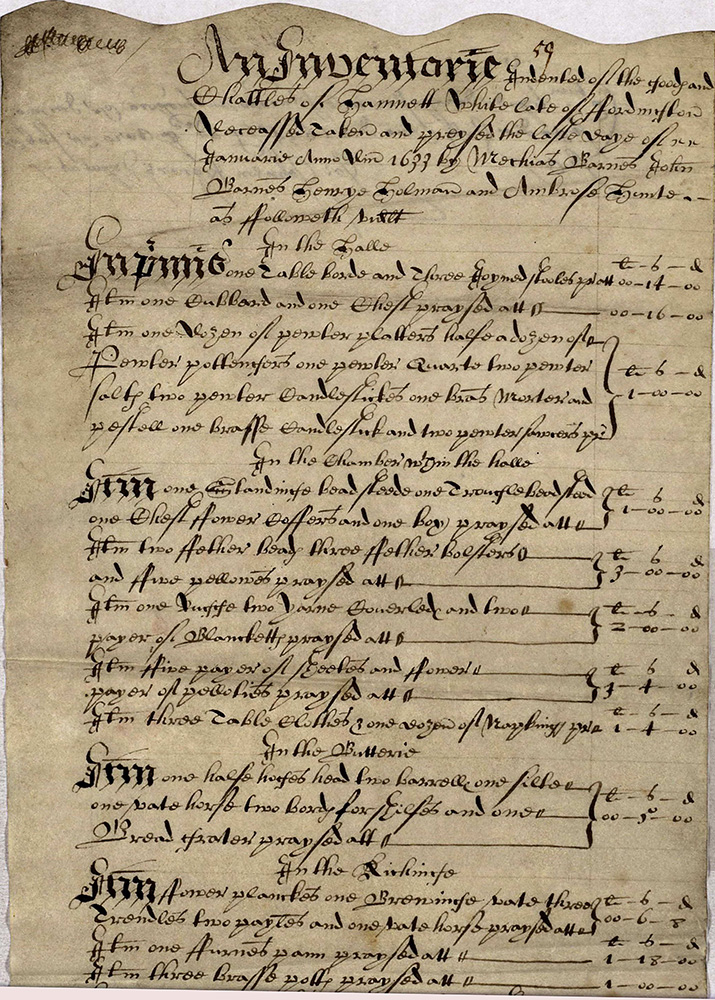 59
An Inventorie Indented of the goods and
Chattles of Hamnett White late of ffordington
deceassed taken and praysed the last daye of
Januarie Anno Dm 1633 by Mechias Barnes John
Barnes Henrye Holman and Ambrose Hunte
as ffolloweth vizt
In the Halle
Inprimis one Table borde and Three Joyned stooles pr att 00 - 14 - 00
li - s - d
Itm one Cubbard and one Chest praysed att 00 - 16 - 00
Itm one dozen of pewter platters halfe a dozen of
Pewter pottengers one pewter Quarte two pewter
li - s - d
salts two pewter Candlestickes one bras Morter and
1 - 00 - 00
pestell one brasse Candlestick and two pewter sawcers pr
In the Chamber wthin the halle
Itm one Standinge beadsteede one Trouckle beadsteed
li s d
one Chest ffower Coffers and one box praysed att 1 - 00 - 00
Itm two ffether beads three ffether bolsters
li s d
and ffive pellowes praysed att 3 - 00 - 00
Itm one two Yarne Coverleds and two
li - s - d
payer of Blancketts praysed att 2 - 00 - 00
Itm ffive payer of sheetes and ffower
li s d
payer of pelloties praysed att 3 - 4 - 00
Itm three Table Clothes & one dozen of Napkings pr
li - s - d
1 - 4 - 00
In the Butterie
Itm one halfe hoges head two barrells one silte
li - s - d
one vate horse two bords for shilfes and one
00 - 5 - 00
Bread Crater praysed att
In the Kichinge
Itm ffower planckes one Brewinge vate three
li - s - d
Trendles two payles and one vate horse praysed att 00 - 6 - 8
li - s - d
Itm one ffurnes pann praysed att 1 - 18 - 00
Itm three brasse potts praysed att 1 - 00 - 00